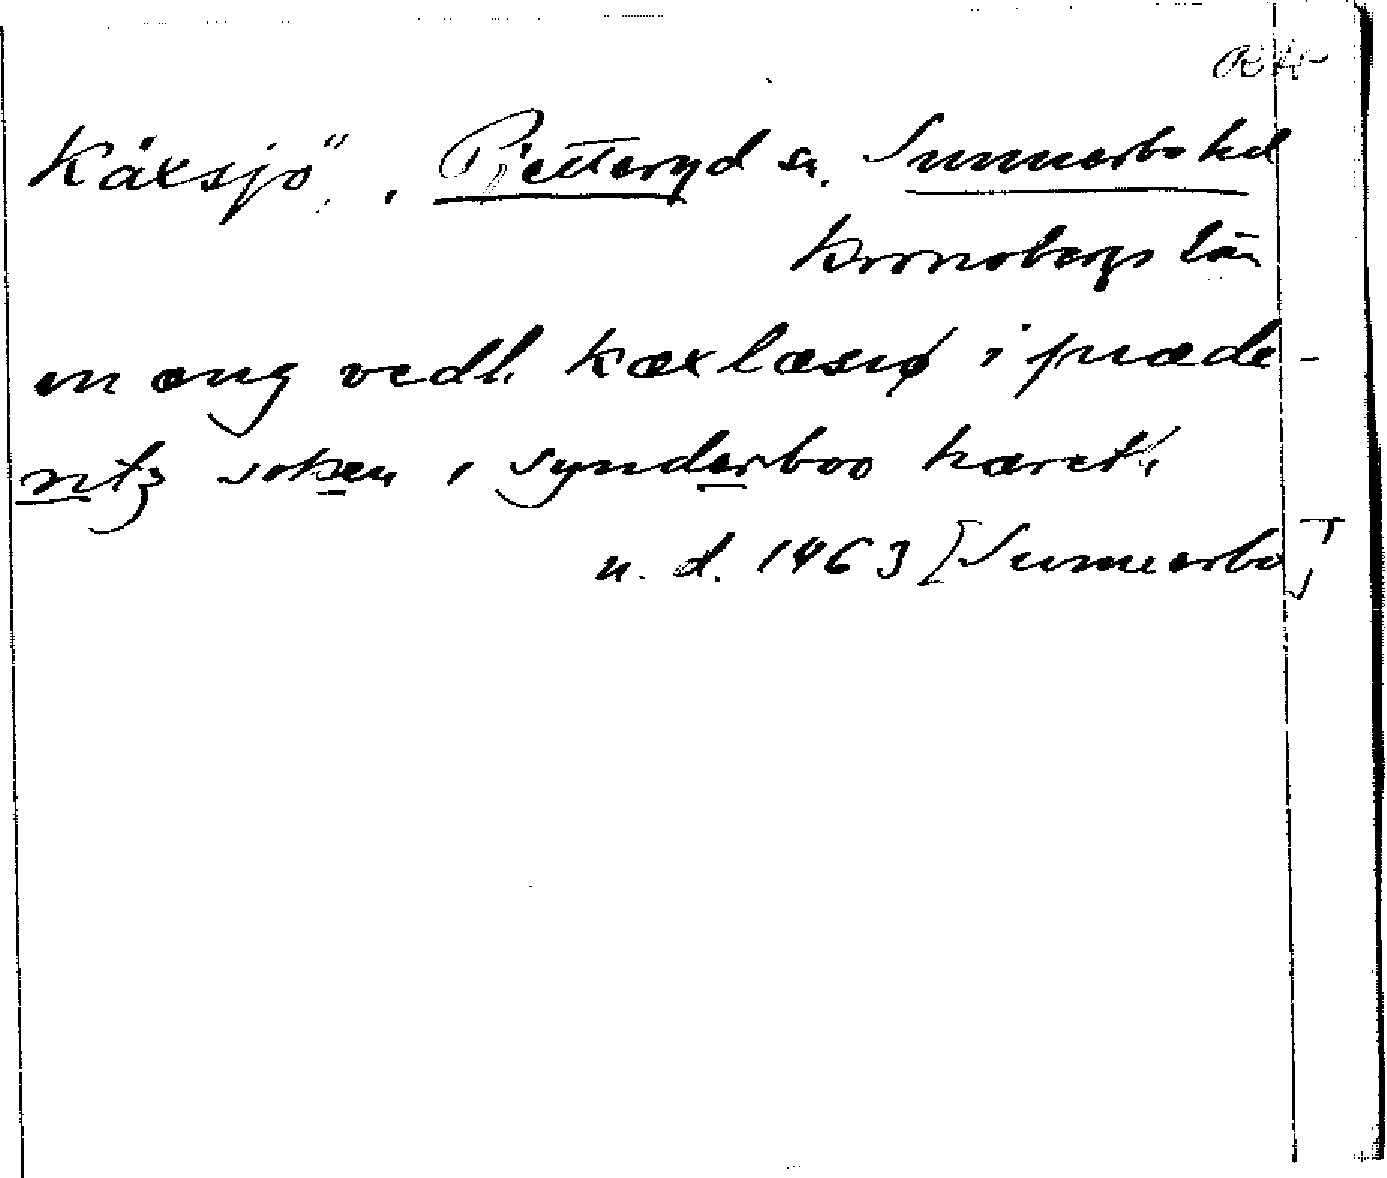 Käxsjö, Pjetteryd sn. Sunnerbo hd
Kronobergs län
en æng vedh kæxlæsiø i piæde-
ritz soken i synderboo hæreth
u. d. 1463 [Sunnerbo]